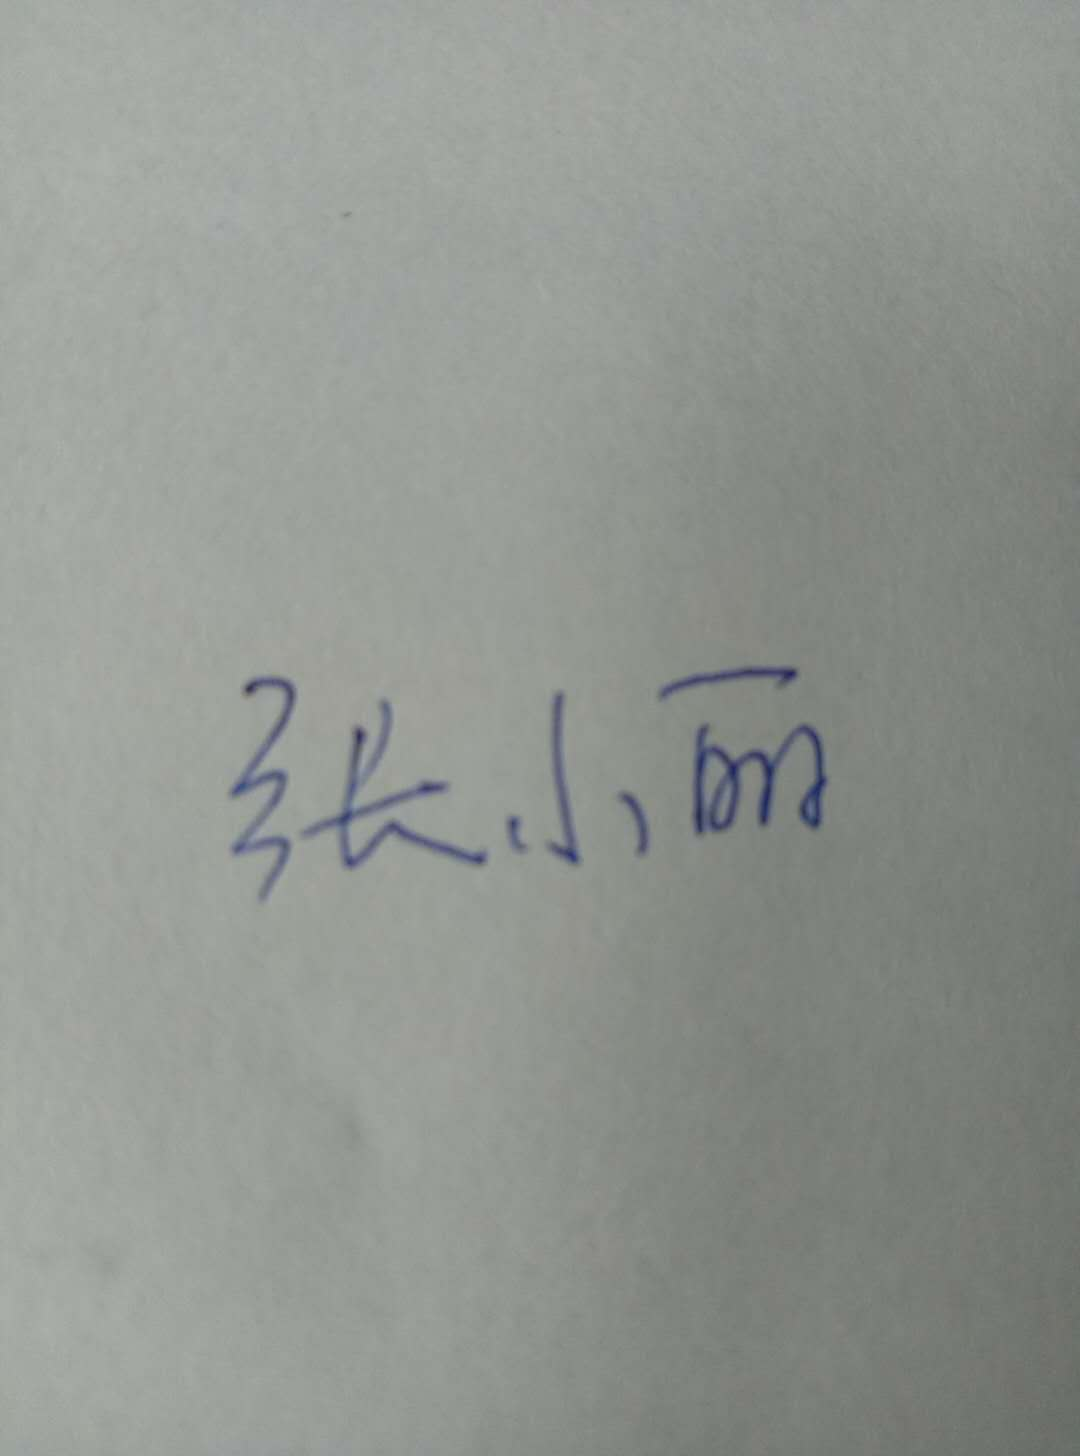 张小丽